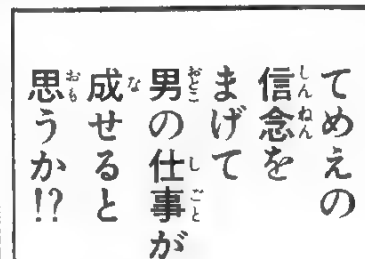 てめえの
信念を
まげて
男の仕事が
成せると
思うか!?